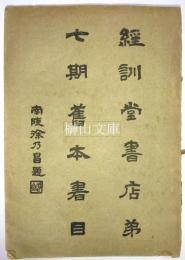 經訓堂書店弟
七期舊本書目
南陵徐乃昌題
榊山文庫